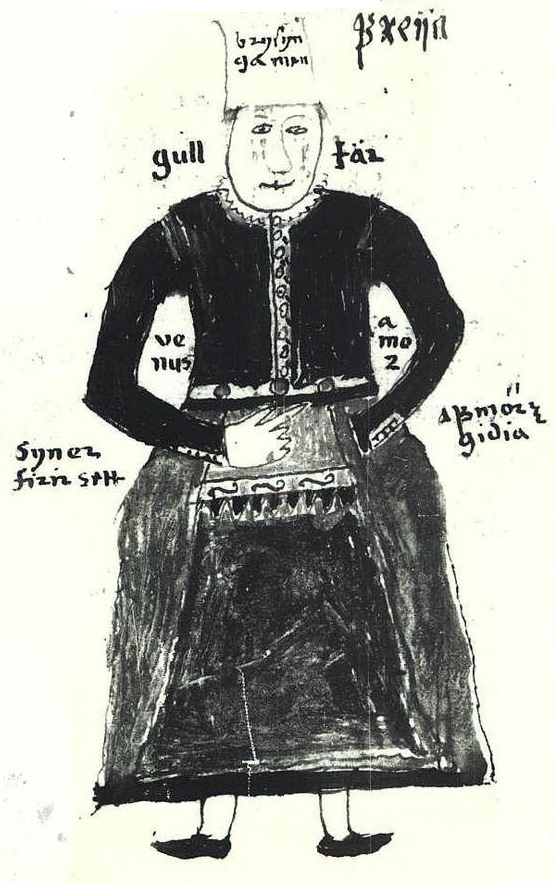 Freija
brysyn
ga men
gull tár
ve
nus
a
mo
r
gidia
Syner
firir sett